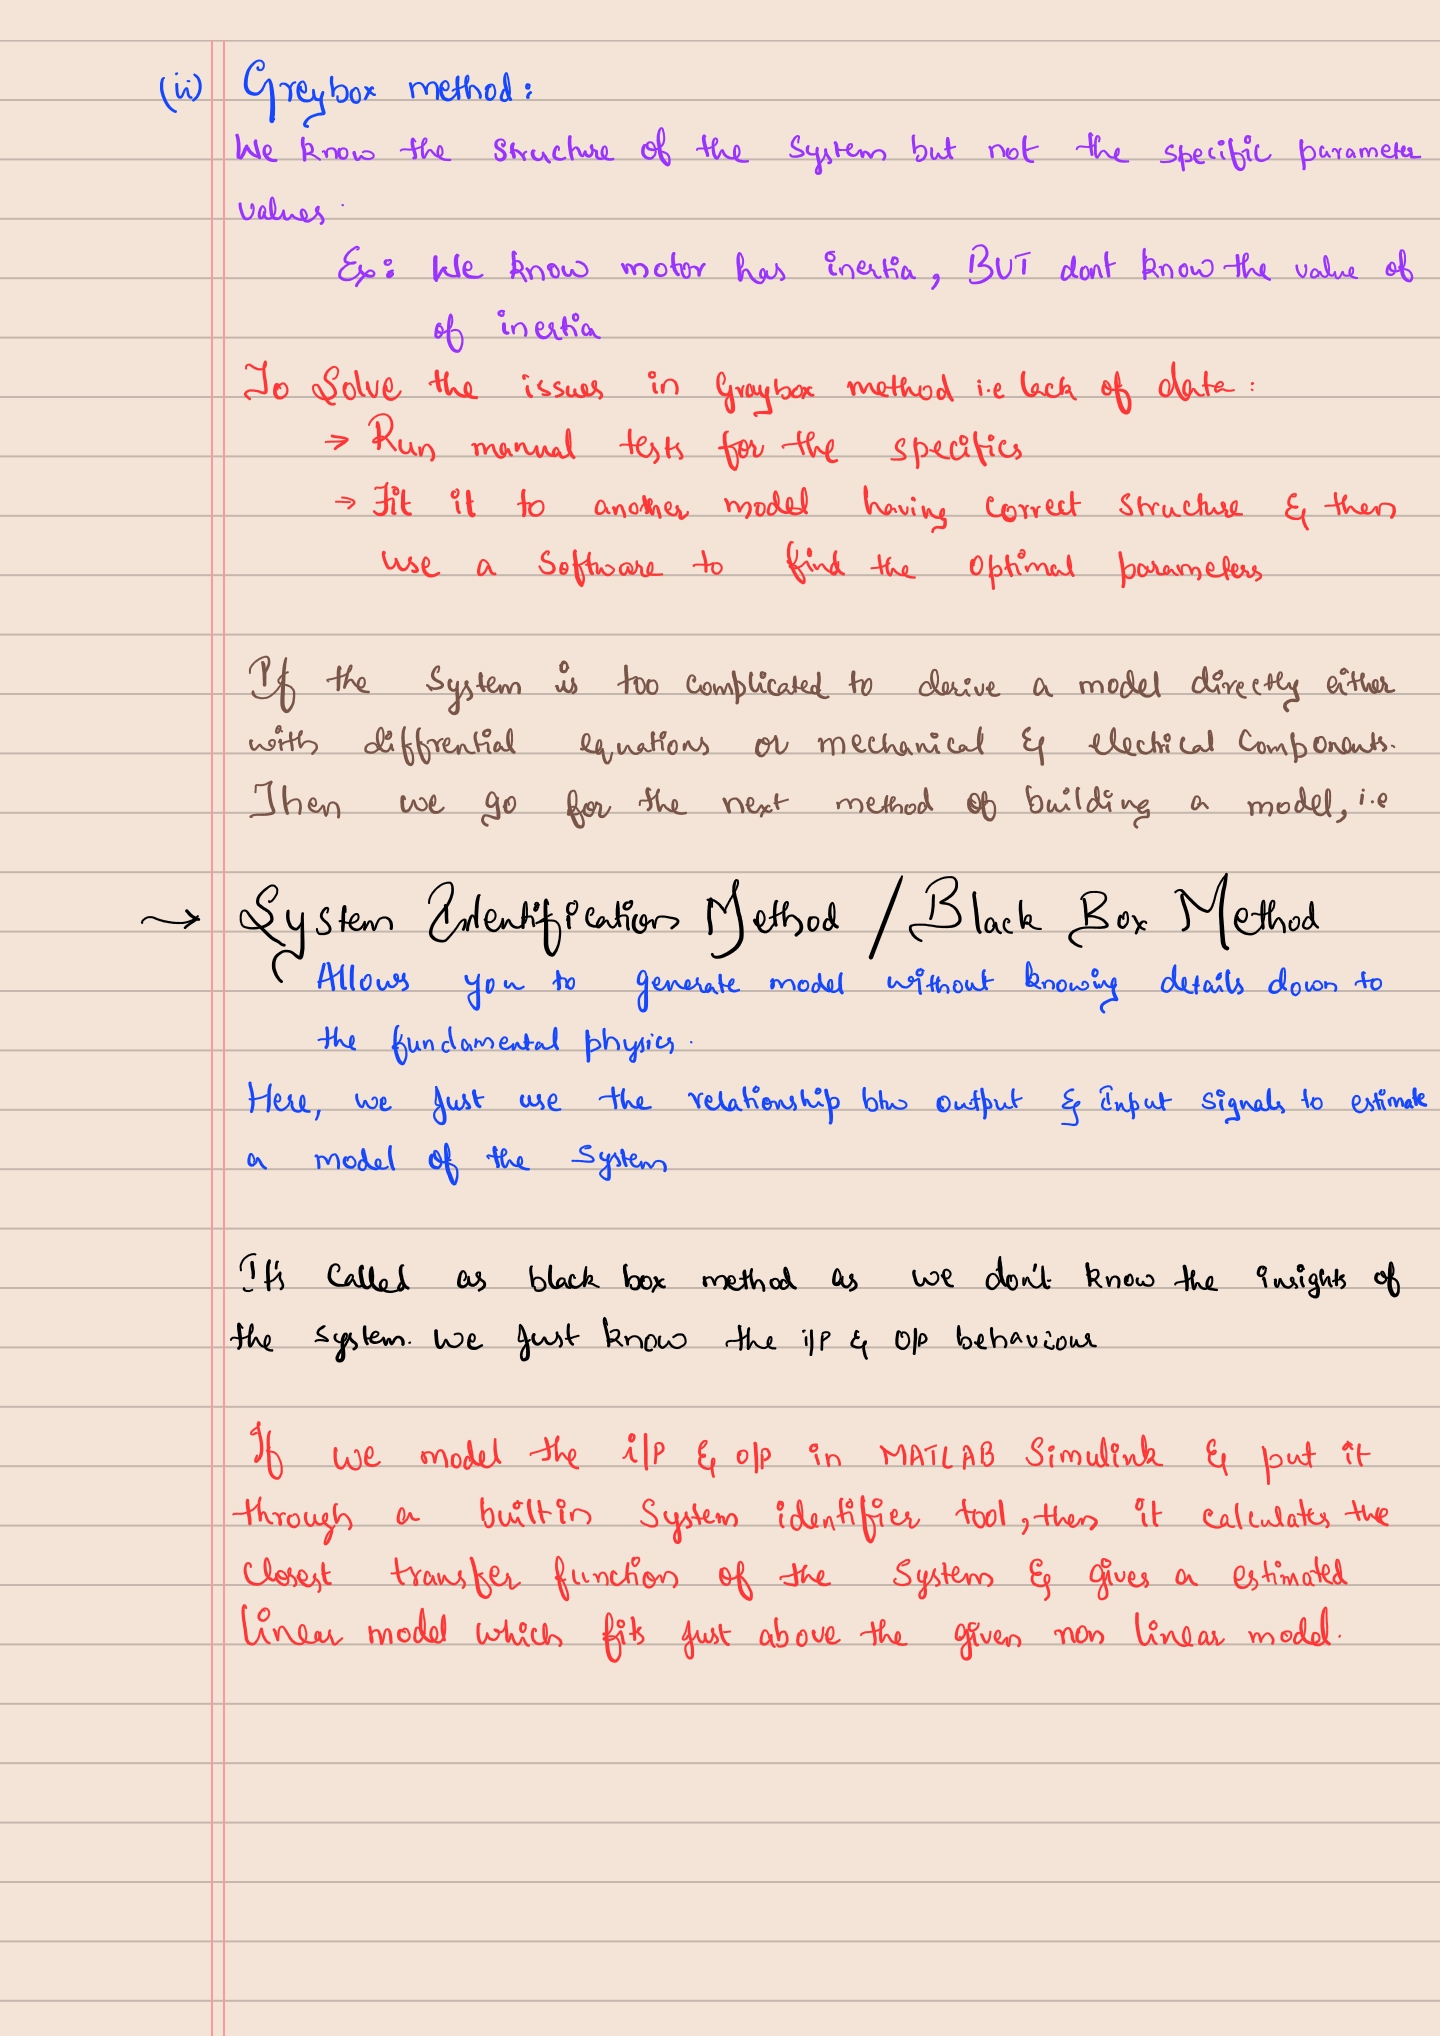 (ii) Greybox method:
We know the structure of the system but not the specific parameter
values.
Ex: We know motor has inertia, BUT dont know the value of
of inertia
To Solve the issues in Graybox method i.e lack of data:
→ Run manual tests for the specifics
→ Fit it to another model having correct structure & then
use a software to find the optimal parameters
If the system is too complicated to derive a model directly either
with diffrential equations or mechanical & electrical components.
Then we go for the next method of building a model, i.e
→ System Identification Method / Black Box Method
Allows you to generate model without knowing details down to
the fundamental physics.
Here, we just use the relationship btw output & input signals to estimate
a model of the system
It's called as black box method as we don't know the insights of
the system. we just know the i/p & o/p behaviour
If we model the i/p & o/p in MATLAB Simulink & put it
through a builtin System identifier tool, then it calculates the
closest transfer function of the system & gives a estimated
linear model which fits just above the given non linear model.